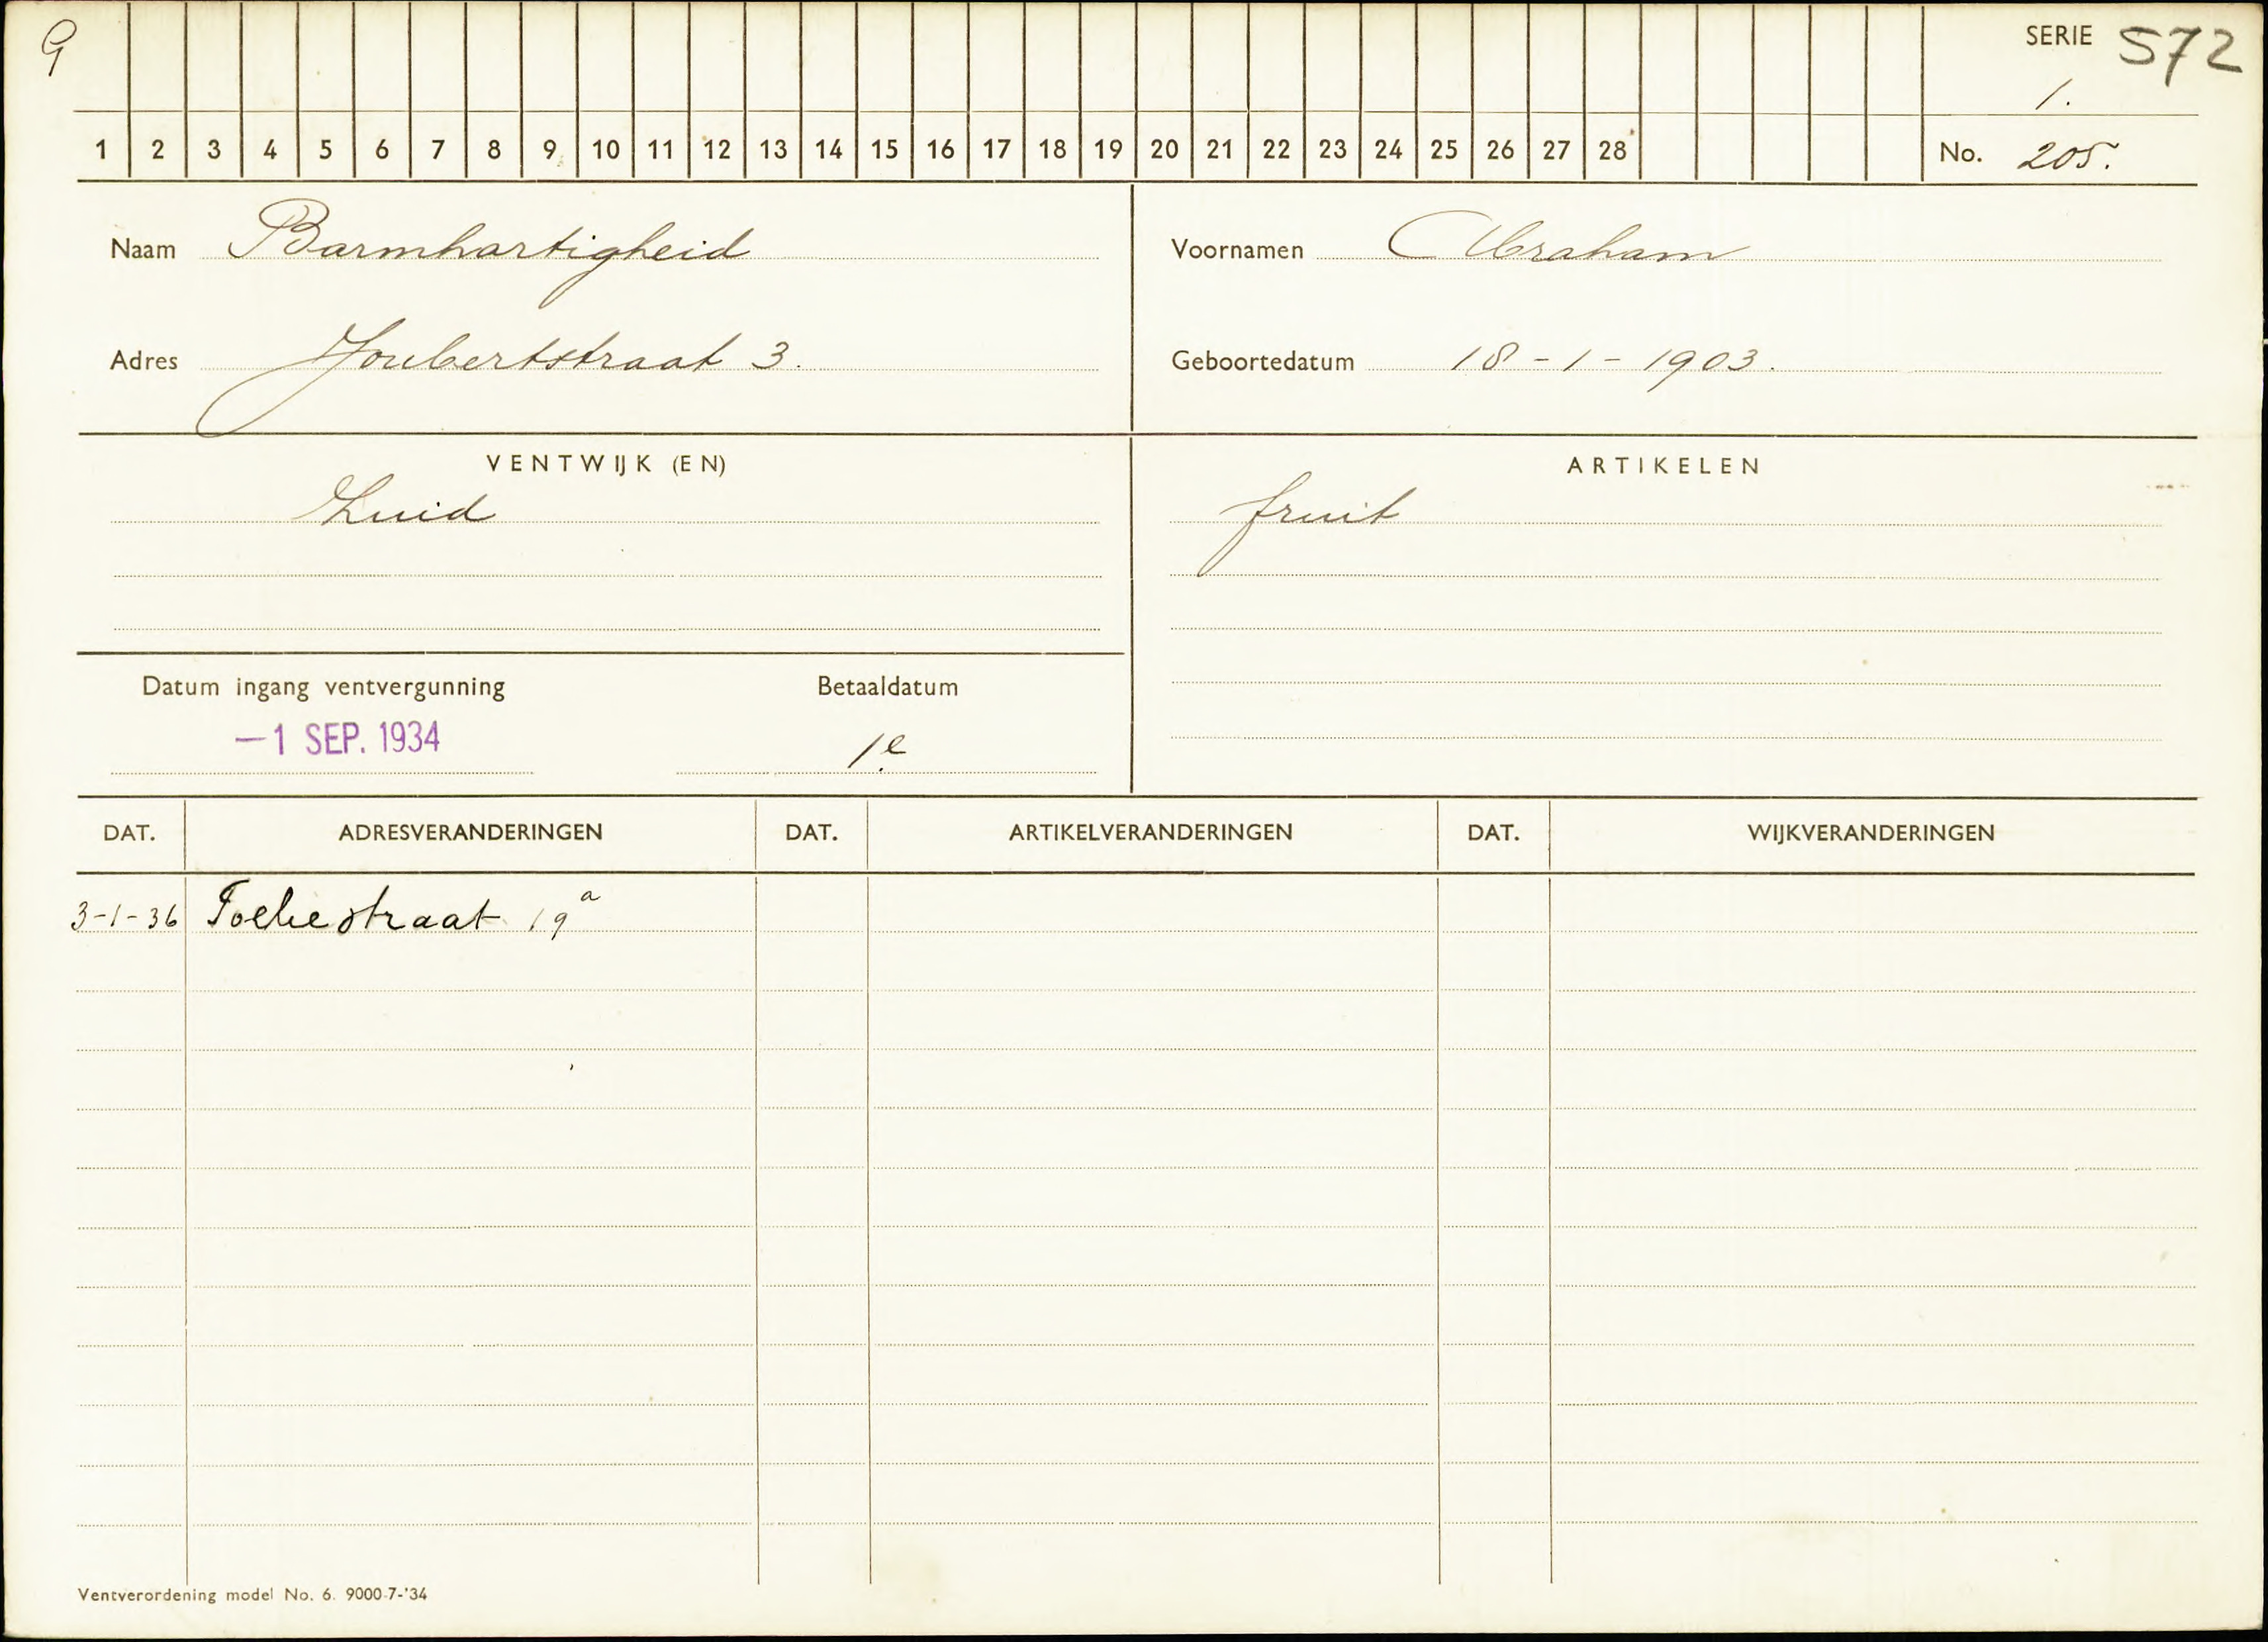 9
SERIE 572
1.
1 2 3 4 5 6 7 8 9 10 11 12 13 14 15 16 17 18 19 20 21 22 23 24 25 26 27 28
No. 205.
Naam Barmhartigheid
Voornamen Abraham
Adres Joubertstraat 3.
Geboortedatum 18-1-1903.
VENTWIJK (EN)
Zuid
ARTIKELEN
fruit
Datum ingang ventvergunning
—1 SEP. 1934
Betaaldatum
1e
DAT. ADRESVERANDERINGEN DAT. ARTIKELVERANDERINGEN DAT. WIJKVERANDERINGEN
3-1-36 straat 19a
Ventverordening model No. 6. 9000-7-'34